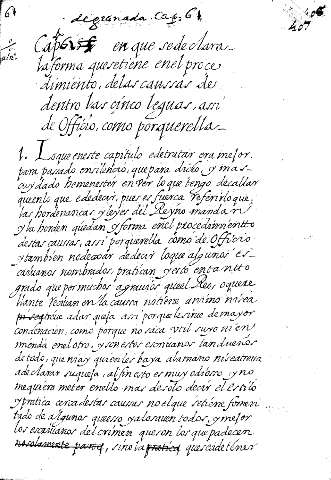 6
de granada. Cap. 61
406
407
Cap. 61 en que se declara
la forma que se tiene en el proce
dimiento, de las caussas de
dentro las cinco leguas, assi
de Officio, como por querella.
1. Lo que en este capitulo e de tratar era mejor.
para pasado en silencio, que para dicho, y mas
cuydado he menester en ver lo que tengo de callar
que en lo que e de dezir, pues es fuerça referir lo que,
las hordenanças y leyes del Reyno mandan
y la horden que dan y forma en el procedimientto
destas causas, assi por querella como de Officio
y tambien no e de dexar de dezir lo que algunos es
criuanos nombrados, pratican y esto en tanto
grado que por muchos agrauios que el Reo, o quere
llante Reciuan en la causa no tiene animo ni sea
adar quexa assi porque les tiene de mayor
condenacion, como porque no saca vtil suyo ni en
mienda en el otro, y son estos escriuanos tan dueños
de todo, que no ay quien les baya a la mano ni se atreua
a declarar su quexa, al fin esto es muy odiosso, y no
me quiero meter en ello mas de solo dezir el estilo
y pratica cerca destas causas no el que se tiene fomen
tado de algunos que esso ya lo sauen todos, y mejor
los escriuanos del crimen que son los que padecen
sino la que se a de tener